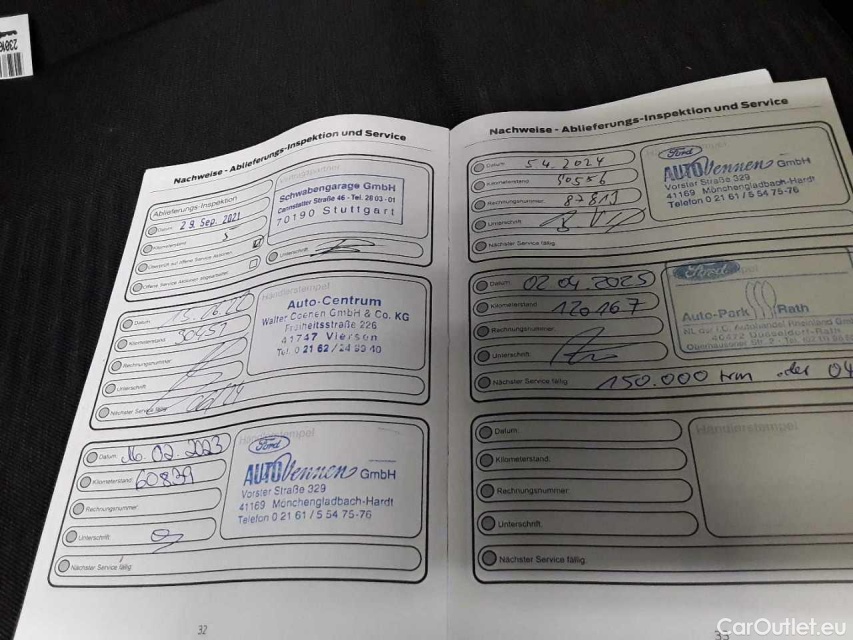 Nachweise - Ablieferungs-Inspektion und Service
Ablieferungs-Inspektion
Datum: 29. Sep. 2021
Kilometerstand: 5
Unterschrift:
Schwabengarage GmbH
Cannstatter Straße 46 - Tel. 28 03 - 01
70190 Stuttgart
Datum:
Kilometerstand: 30457
Rechnungsnummer:
Unterschrift:
Nächster Service fällig:
Händlerstempel
Auto-Centrum
Walter Coenen GmbH & Co. KG
Freiheitsstraße 226
41747 Viersen
Tel. 0 21 62 / 24 99 40
Datum: 16.02.2023
Kilometerstand: 60839
Rechnungsnummer:
Unterschrift:
Nächster Service fällig:
Ford
AUTO Vennen GmbH
Vorster Straße 329
41169 Mönchengladbach-Hardt
Telefon 0 21 61 / 5 54 75-76
32
Nachweise - Ablieferungs-Inspektion und Service
Datum: 5.4.2024
Kilometerstand: 90556
Rechnungsnummer: 87819
Unterschrift:
Nächster Service fällig:
Ford
AUTO Vennen GmbH
Vorster Straße 329
41169 Mönchengladbach-Hardt
Telefon 0 21 61 / 5 54 75-76
Datum: 02.04.2025
Kilometerstand: 120167
Rechnungsnummer:
Unterschrift:
Nächster Service fällig: 150.000 km oder 04
Ford
Auto-Park Rath
Datum:
Kilometerstand:
Rechnungsnummer:
Unterschrift:
Nächster Service fällig:
Händlerstempel
33
CarOutlet.eu